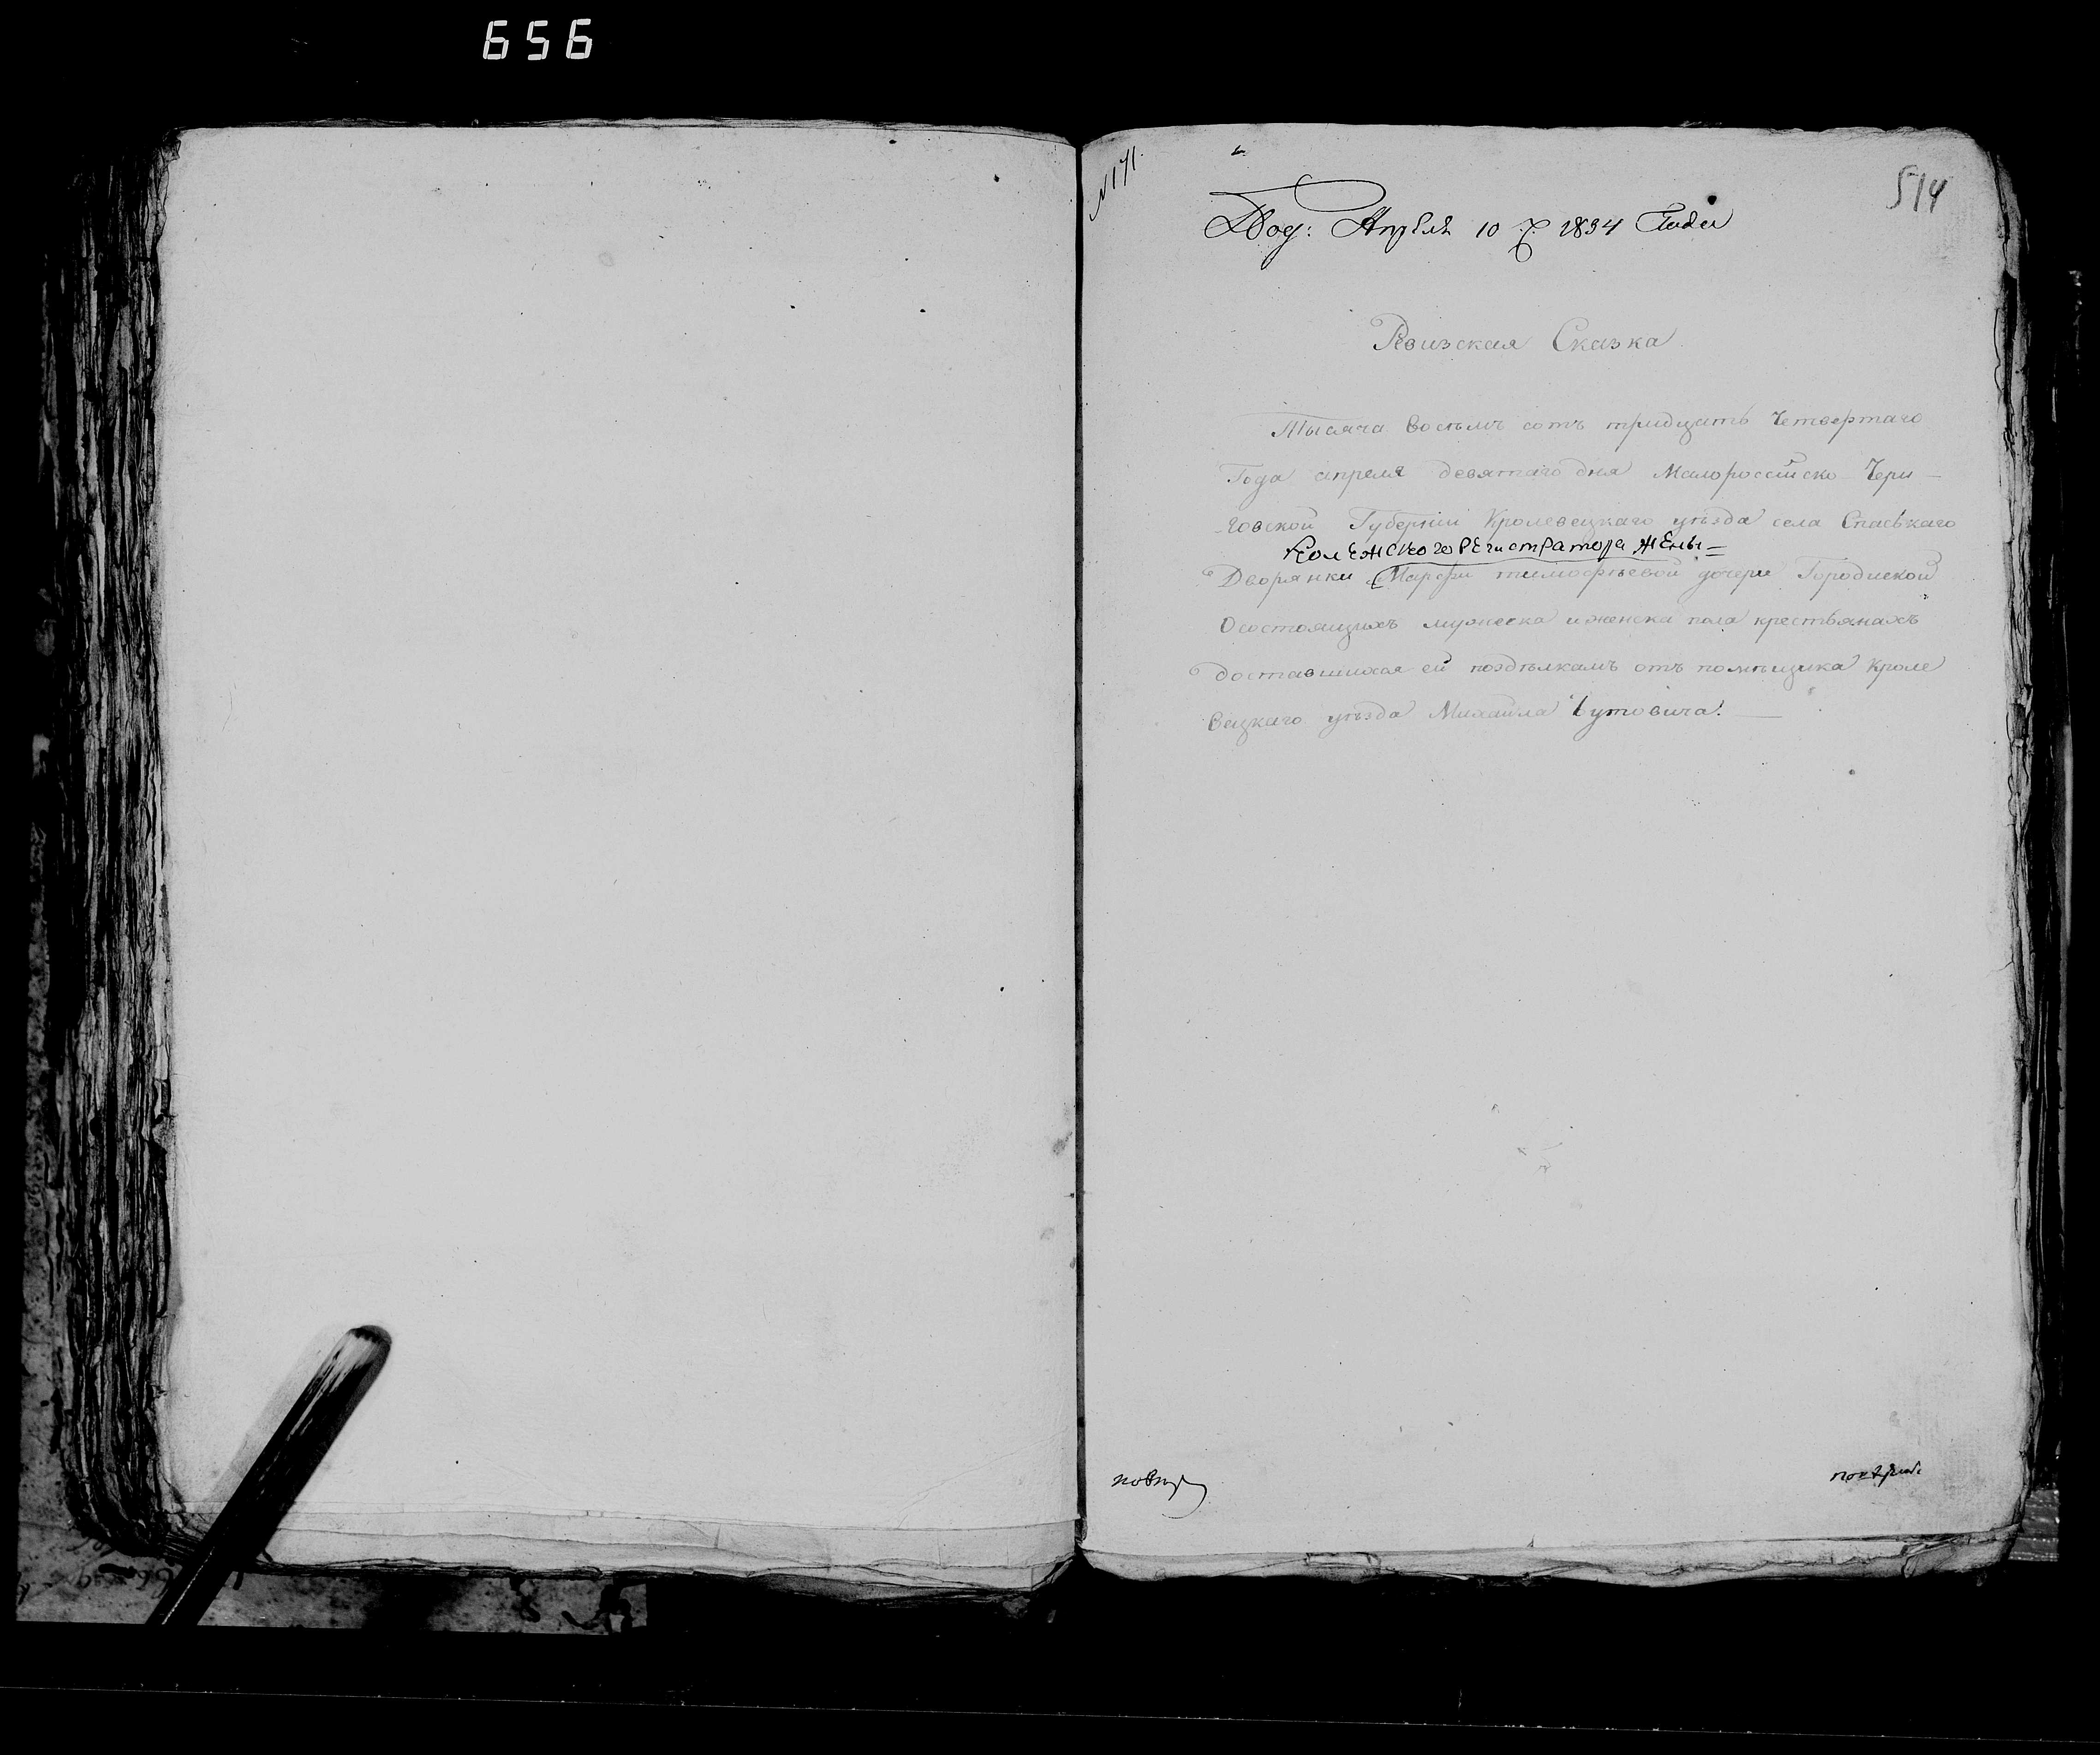 656
N 171.
514
Под: Апреля 10 д. 1834 Года
Ревизская Сказка
Тысяча восемъ сотъ тридцать Четвертаго
Года апреля девятаго дня Малороссійско Черни–
–говской Губерніи Кролевецкаго уѣзда села Спаськаго
Колежского Регистратора жены =
Дворянки Марфи тимофѣевой дочери Городиской
О состоящихъ мужеска и женска пола крестьянахъ
доставшихся ей поздѣлкамъ отъ помѣщика Кроле
вецкаго уѣзда Михайла Бутовича. —
повѣр